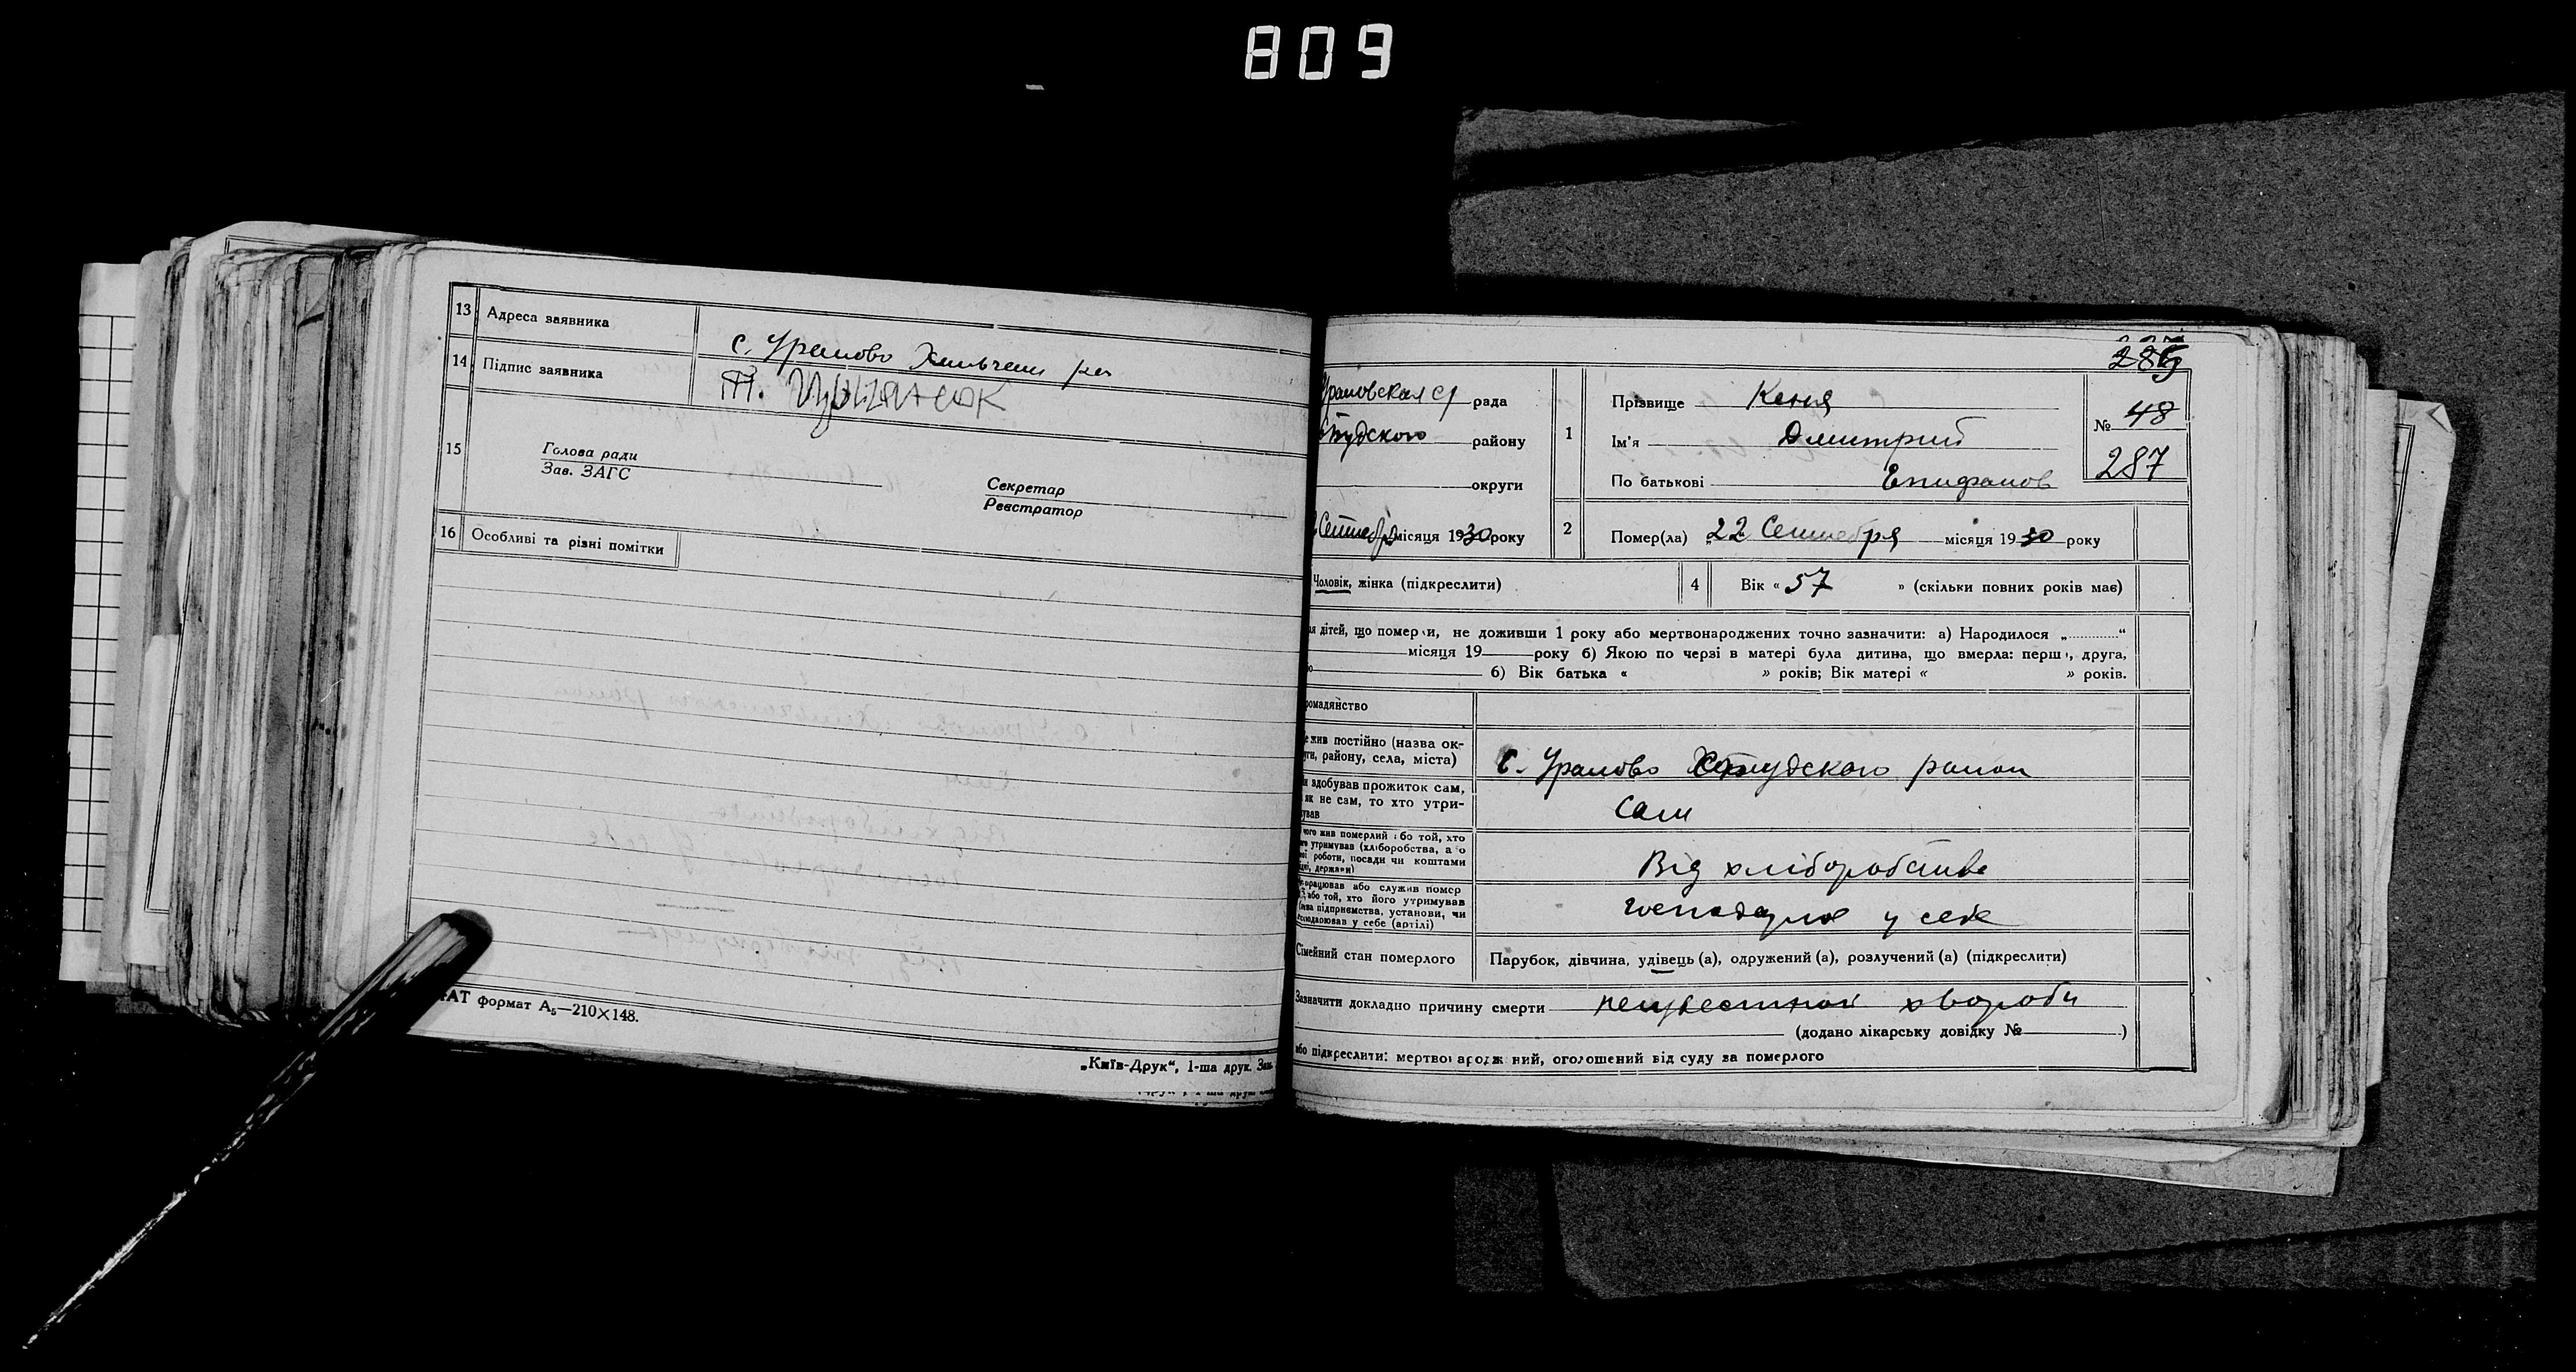 809
13 Адреса заявника
с. Урамово
14 Підпис заявника
15
Голова ради
Зав. ЗАГС
Секретар
Реєстратор
16 Особливі та різні помітки
ТАТ формат А₅—210×148.
„Київ-Друк“, 1-ша друк. Зам.
рада
району
округи
місяця 1930 року
1
Прізвище Кеня
Ім'я Дмитрий
По батькові Епифанов
№ 48
287
2
Помер(ла) „22 Сентебря місяця 1930 року
Чоловік, жінка (підкреслити)
4 Вік « 57 » (скільки повних років має)
ля дітей, що померли, не доживши 1 року або мертвонароджених точно зазначити: а) Народилося „............“
місяця 19 року б) Якою по черзі в матері була дитина, що вмерла: перша, друга,
б) Вік батька « » років; Вік матері « » років.
ромадянство
е жив постійно (назва ок-
уги, району, села, міста)
с. Урамово
и здобував прожиток сам,
як не сам, то хто утри-
ував
сам
чого жив померлий або той, хто
його утримував (хліборобства, а о
ої роботи, посади чи коштами
ідні, держави)
Від хліборобства
працював або служив помер
або той, хто його утримував
(назва підприємства, установи, чи
господарював у себе (артілі)
у себе
Сімейний стан померлого
Парубок, дівчина, удівець (а), одружений (а), розлучений (а) (підкреслити)
Зазначити докладно причину смерти хвороби
(додано лікарську довідку № )
або підкреслити: мертвонароджений, оголошений від суду за померлого